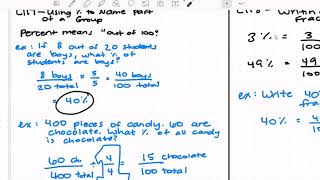 L117 - Using % to Name Part
of a Group
Percent means "out of 100"
ex: If 8 out of 20 students
are boys, what % of
students are boys?
8 boys / 20 total × 5/5 = 40 boys / 100 total
40%
ex: 400 pieces of candy. 60 are
chocolate. What % of all candy
is chocolate?
60 ch / 400 total ÷ 4/4 = 15 chocolate / 100 total
3% = 3 / 100
49% =
ex: Write 40%
40% =